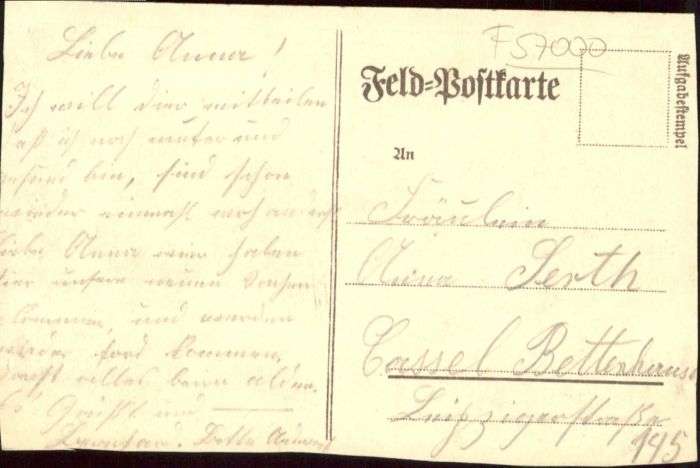 Liebe Anna!
Ich will dier mitteilen
daß ich noch munter und
gesund bin, sind schon
wieder einmahl
Liebe Anna wier haben
hier unsere neuen Sachen
bekommen, und werden
wieder ford kommen,
sonst alles beim alden.
Es Grüßt und
F57000
Feld-Postkarte
Aufgabestempel
An
Fräulein
Anna Serth
Cassel Bettenhausen
Leipzigerstraße
195